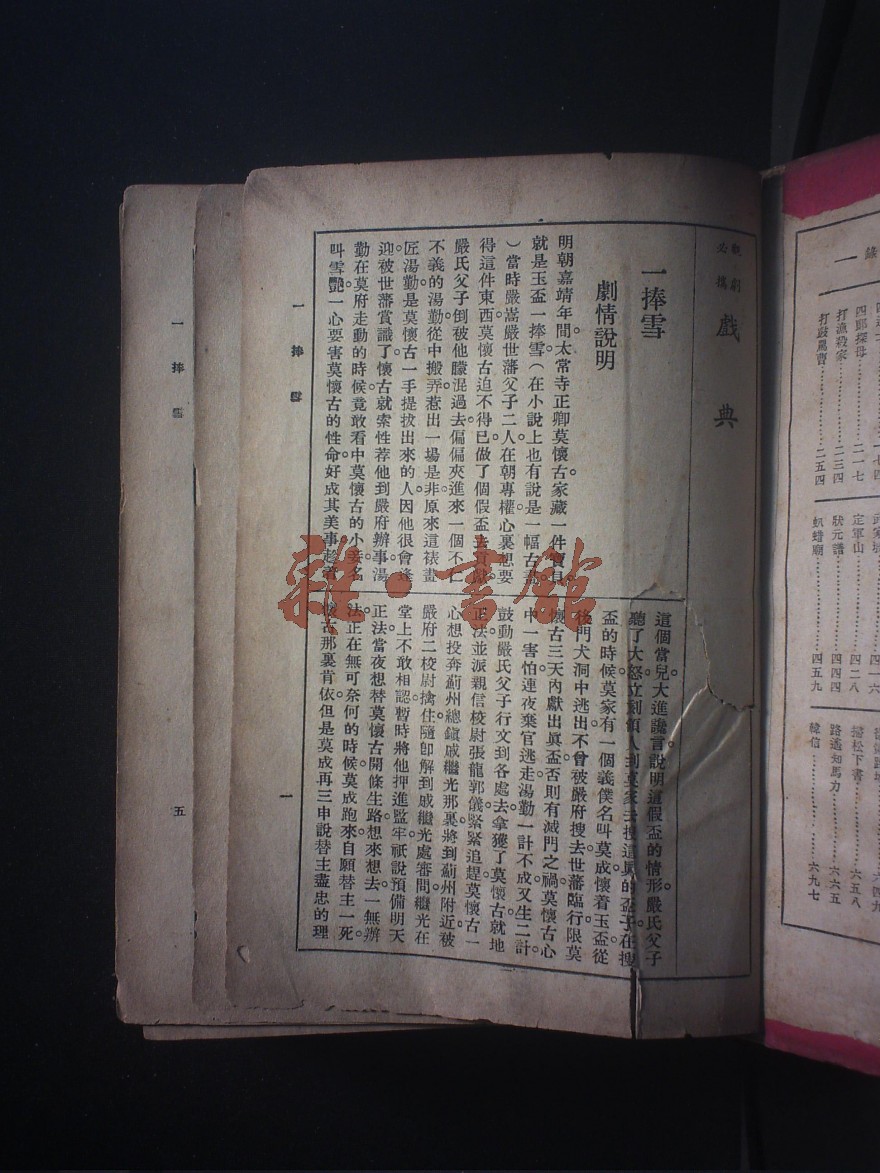 觀劇
必攜
戲典
一捧雪
劇情說明
明朝嘉靖年間。太常寺正卿莫懷古家藏一件寶貝。
就是玉盃一捧雪(在小說上也有說是一幅古畫
)當時嚴嵩嚴世藩父子二人。在朝專權。心裏想要
得這件東西。莫懷古迫不得已。做了個假盃去貢獻。
嚴氏父子倒被他朦混過去。偏偏夾進來一個不仁
不義的湯勤從中搬弄。惹出一場是非。原來這裱畫
匠湯勤。是莫懷古一手提拔出來的人。因他很會逢
迎。被世藩賞識了。懷古就索性荐他到嚴府辦事。湯
勤在莫府走動的時候。竟敢看中莫懷古的小妾名
叫雪艷。一心要害莫懷古的性命。好成其美事。趁着
這個當兒。大進讒言。說明這假盃的情形。嚴氏父子
聽了大怒。立刻領人到莫家去搜這眞的盃子。在搜
盃的時候。莫家有一個義僕名叫莫成。懷着玉盃。從
後門犬洞中逃出。不曾被嚴府搜去。世藩臨行。限莫
懷古三天內獻出眞盃。否則有滅門之禍。莫懷古心
中一害怕。連夜棄官逃走。湯勤一計不成。又生二計。
鼓動嚴氏父子行文到各處去。拿獲了莫懷古就地
正法。並派親信校尉張龍郭儀。緊緊追趕。莫懷古一
心想投奔薊州總鎭戚繼光那裏。將到薊州附近。被
嚴府二校尉擒住。隨卽解到戚繼光處審問。繼光在
堂上不敢相認。暫時將他押進監牢。祇說預備明天
正法。當夜想替莫懷古開條生路。想來想去。一無辦
法。正在無可奈何的時候。莫成跑來自願替主一死。
懷古那裏肯依。但是莫成再三申說替主盡忠的理
一捧雪
一
一捧雪
五
錄
一
四郎探母……二一七
打漁殺家……二三四
打鼓罵曹……二五四
定軍山……四二八
狀元譜……四四四
虮蜡廟……四五九
掃松下書……六五八
路遙知馬力……六六五
韓信……六九七
雜·書館